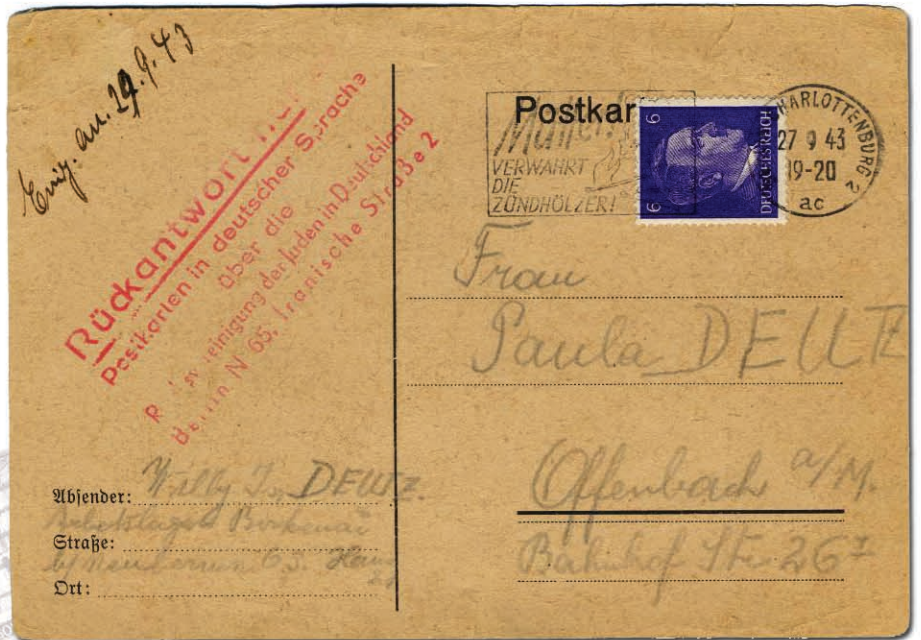 Eing. an. 29.9.43
Rückantwort nur
Postkarten in deutscher Sprache
über die
Reichsvereinigung der Juden in Deutschland
Berlin N 65, Iranische Straße 2
Postkar
Mütter!
VERWAHRT
DIE
ZÜNDHÖLZER!
6 6
DEUTSCHES REICH
CHARLOTTENBURG 2
27 9 43
19-20
ac
Frau
Paula DEUTZ
Offenbach a/M.
Bahnhof Str. 26 I
Absender: Willy I. DEUTZ.
Arbeitslager Birkenau
Straße: b/Neuberun O.S. Haus
Ort: